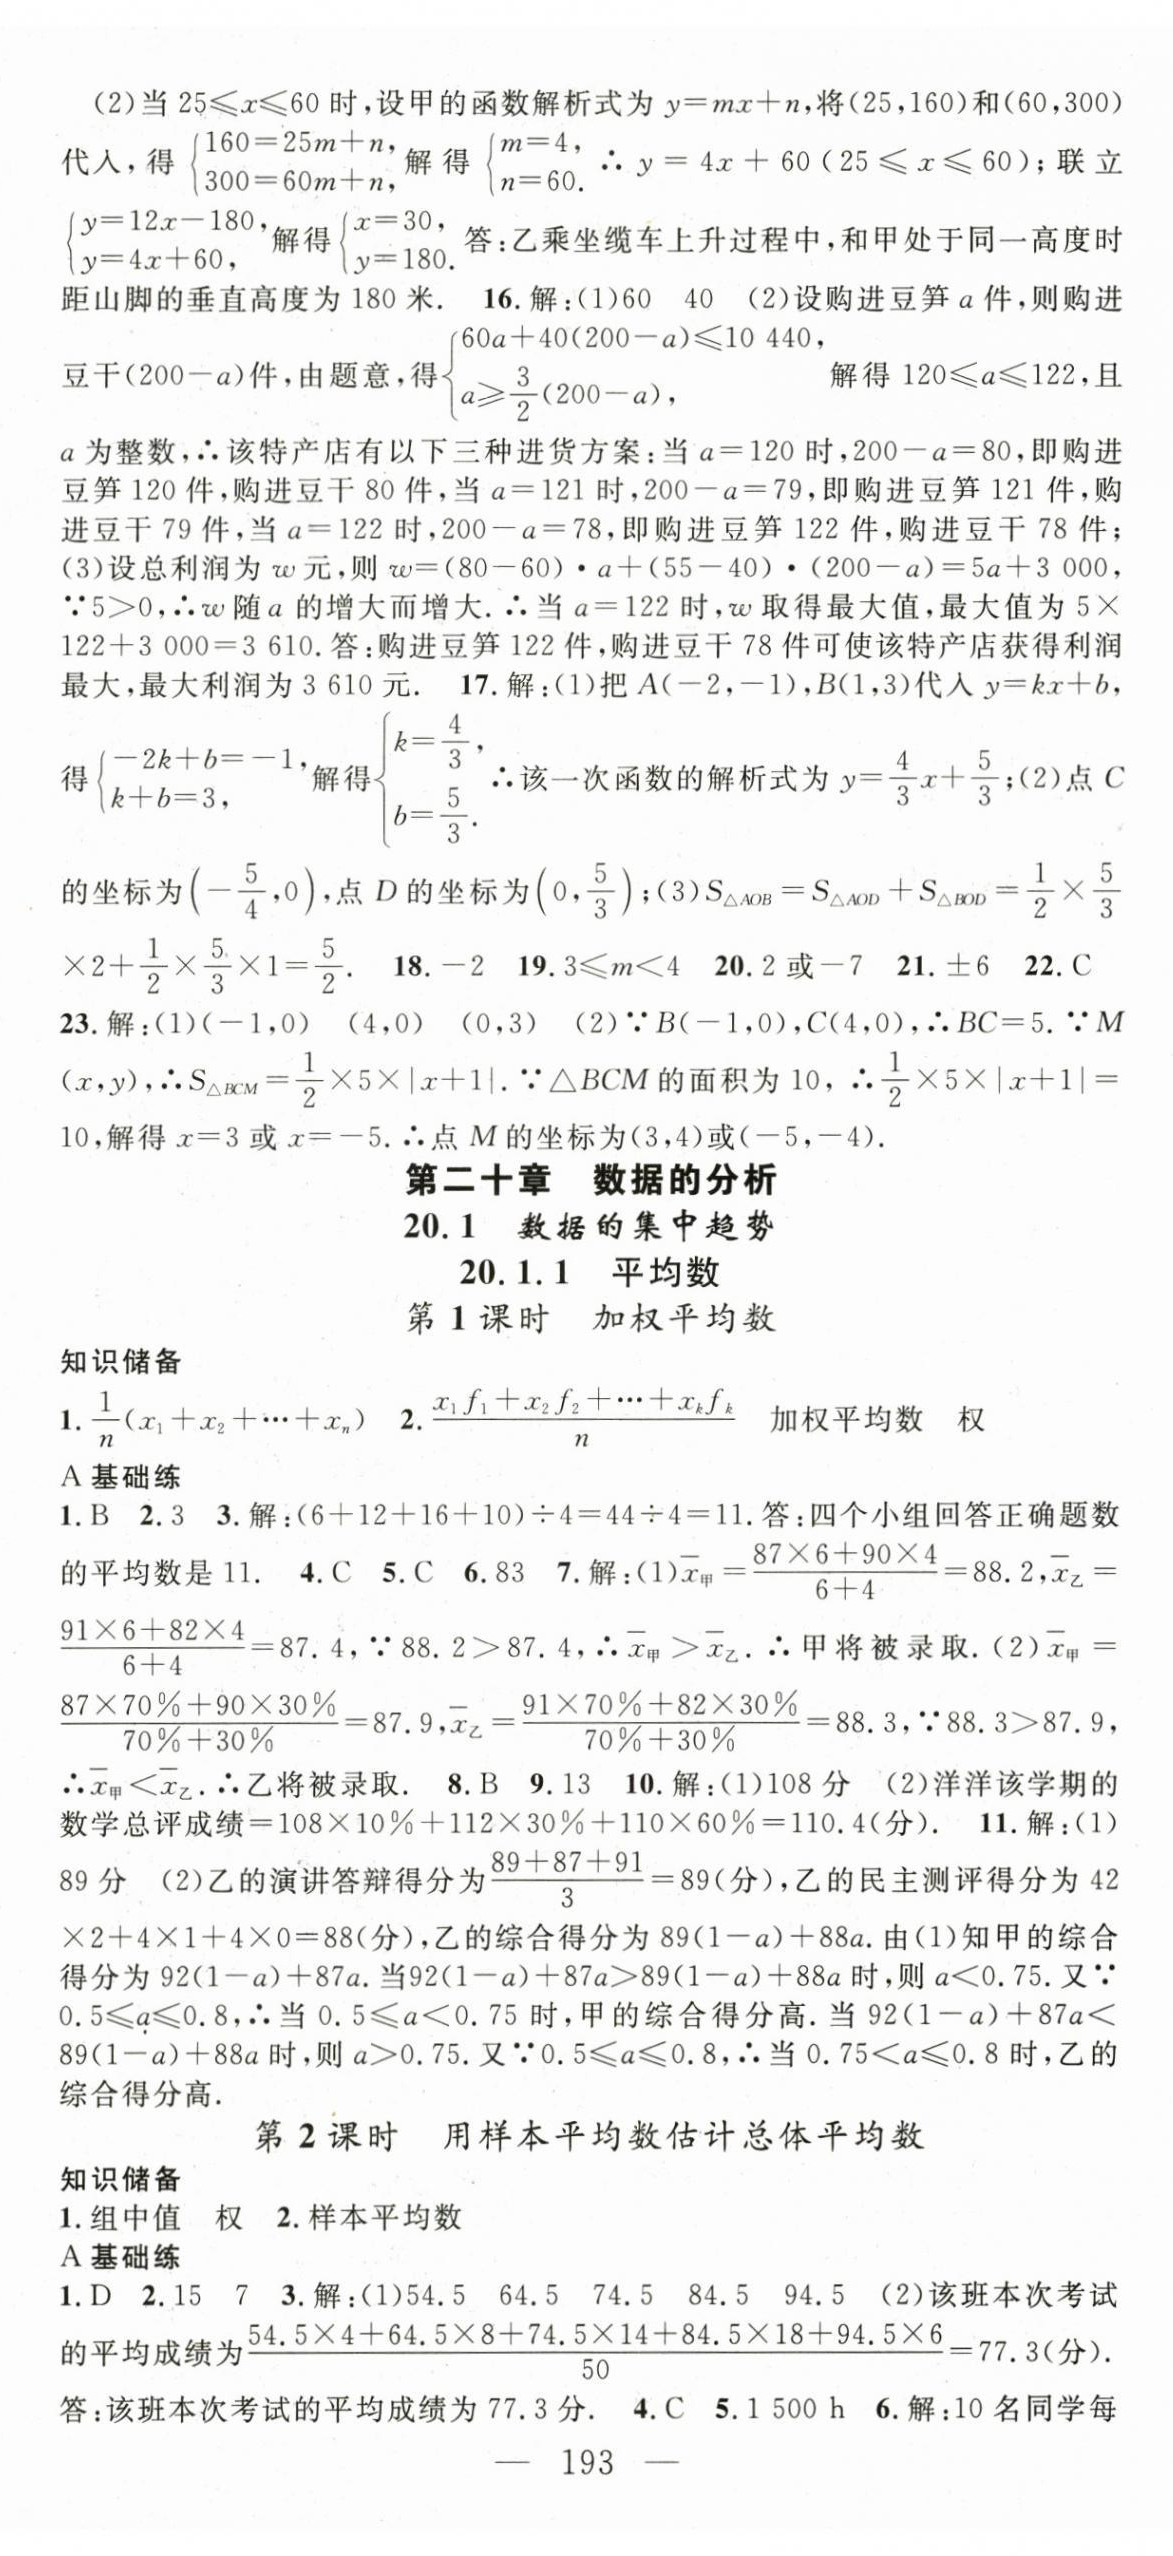 (2)当 25≤x≤60 时,设甲的函数解析式为 y=mx+n,将(25,160)和(60,300)
代入,得 {160=25m+n, 300=60m+n, 解得 {m=4, n=60. ∴ y = 4x + 60 (25 ≤ x ≤ 60);联立
{y=12x-180, y=4x+60, 解得 {x=30, y=180. 答:乙乘坐缆车上升过程中,和甲处于同一高度时
距山脚的垂直高度为 180 米. 16.解:(1)60 40 (2)设购进豆笋 a 件,则购进
豆干(200-a)件,由题意,得 {60a+40(200-a)≤10 440, a≥3/2(200-a), 解得 120≤a≤122,且
a 为整数,∴该特产店有以下三种进货方案:当 a=120 时,200-a=80,即购进
豆笋 120 件,购进豆干 80 件,当 a=121 时,200-a=79,即购进豆笋 121 件,购
进豆干 79 件,当 a=122 时,200-a=78,即购进豆笋 122 件,购进豆干 78 件;
(3)设总利润为 w 元,则 w=(80-60)·a+(55-40)·(200-a)=5a+3 000,
∵5>0,∴w 随 a 的增大而增大.∴当 a=122 时,w 取得最大值,最大值为 5×
122+3 000=3 610.答:购进豆笋 122 件,购进豆干 78 件可使该特产店获得利润
最大,最大利润为 3 610 元. 17.解:(1)把 A(-2,-1),B(1,3)代入 y=kx+b,
得 {-2k+b=-1, k+b=3, 解得 {k=4/3, b=5/3. ∴该一次函数的解析式为 y=4/3x+5/3;(2)点 C
的坐标为(-5/4,0),点 D 的坐标为(0,5/3);(3)S△AOB=S△AOD+S△BOD=1/2×5/3
×2+1/2×5/3×1=5/2. 18.-2 19.3≤m<4 20.2 或-7 21.±6 22.C
23.解:(1)(-1,0) (4,0) (0,3) (2)∵B(-1,0),C(4,0),∴BC=5.∵M
(x,y),∴S△BCM=1/2×5×|x+1|.∵△BCM 的面积为 10, ∴1/2×5×|x+1|=
10,解得 x=3 或 x=-5.∴点 M 的坐标为(3,4)或(-5,-4).
第二十章 数据的分析
20.1 数据的集中趋势
20.1.1 平均数
第 1 课时 加权平均数
知识储备
1. 1/n(x₁+x₂+…+xₙ) 2. (x₁f₁+x₂f₂+…+xₖfₖ)/n 加权平均数 权
A 基础练
1.B 2.3 3.解:(6+12+16+10)÷4=44÷4=11.答:四个小组回答正确题数
的平均数是 11. 4.C 5.C 6.83 7.解:(1)x̄甲=(87×6+90×4)/(6+4)=88.2,x̄乙=
(91×6+82×4)/(6+4)=87.4,∵88.2>87.4,∴x̄甲>x̄乙.∴甲将被录取.(2)x̄甲=
(87×70%+90×30%)/(70%+30%)=87.9,x̄乙=(91×70%+82×30%)/(70%+30%)=88.3,∵88.3>87.9,
∴x̄甲<x̄乙.∴乙将被录取. 8.B 9.13 10.解:(1)108 分 (2)洋洋该学期的
数学总评成绩=108×10%+112×30%+110×60%=110.4(分). 11.解:(1)
89 分 (2)乙的演讲答辩得分为(89+87+91)/3=89(分),乙的民主测评得分为 42
×2+4×1+4×0=88(分),乙的综合得分为 89(1-a)+88a.由(1)知甲的综合
得分为 92(1-a)+87a.当92(1-a)+87a>89(1-a)+88a 时,则 a<0.75.又∵
0.5≤a≤0.8,∴当 0.5≤a<0.75 时,甲的综合得分高.当 92(1-a)+87a<
89(1-a)+88a 时,则 a>0.75.又∵0.5≤a≤0.8,∴当 0.75<a≤0.8 时,乙的
综合得分高.
第 2 课时 用样本平均数估计总体平均数
知识储备
1.组中值 权 2.样本平均数
A 基础练
1.D 2.15 7 3.解:(1)54.5 64.5 74.5 84.5 94.5 (2)该班本次考试
的平均成绩为(54.5×4+64.5×8+74.5×14+84.5×18+94.5×6)/50=77.3(分).
答:该班本次考试的平均成绩为 77.3 分. 4.C 5.1 500 h 6.解:10 名同学每
— 193 —